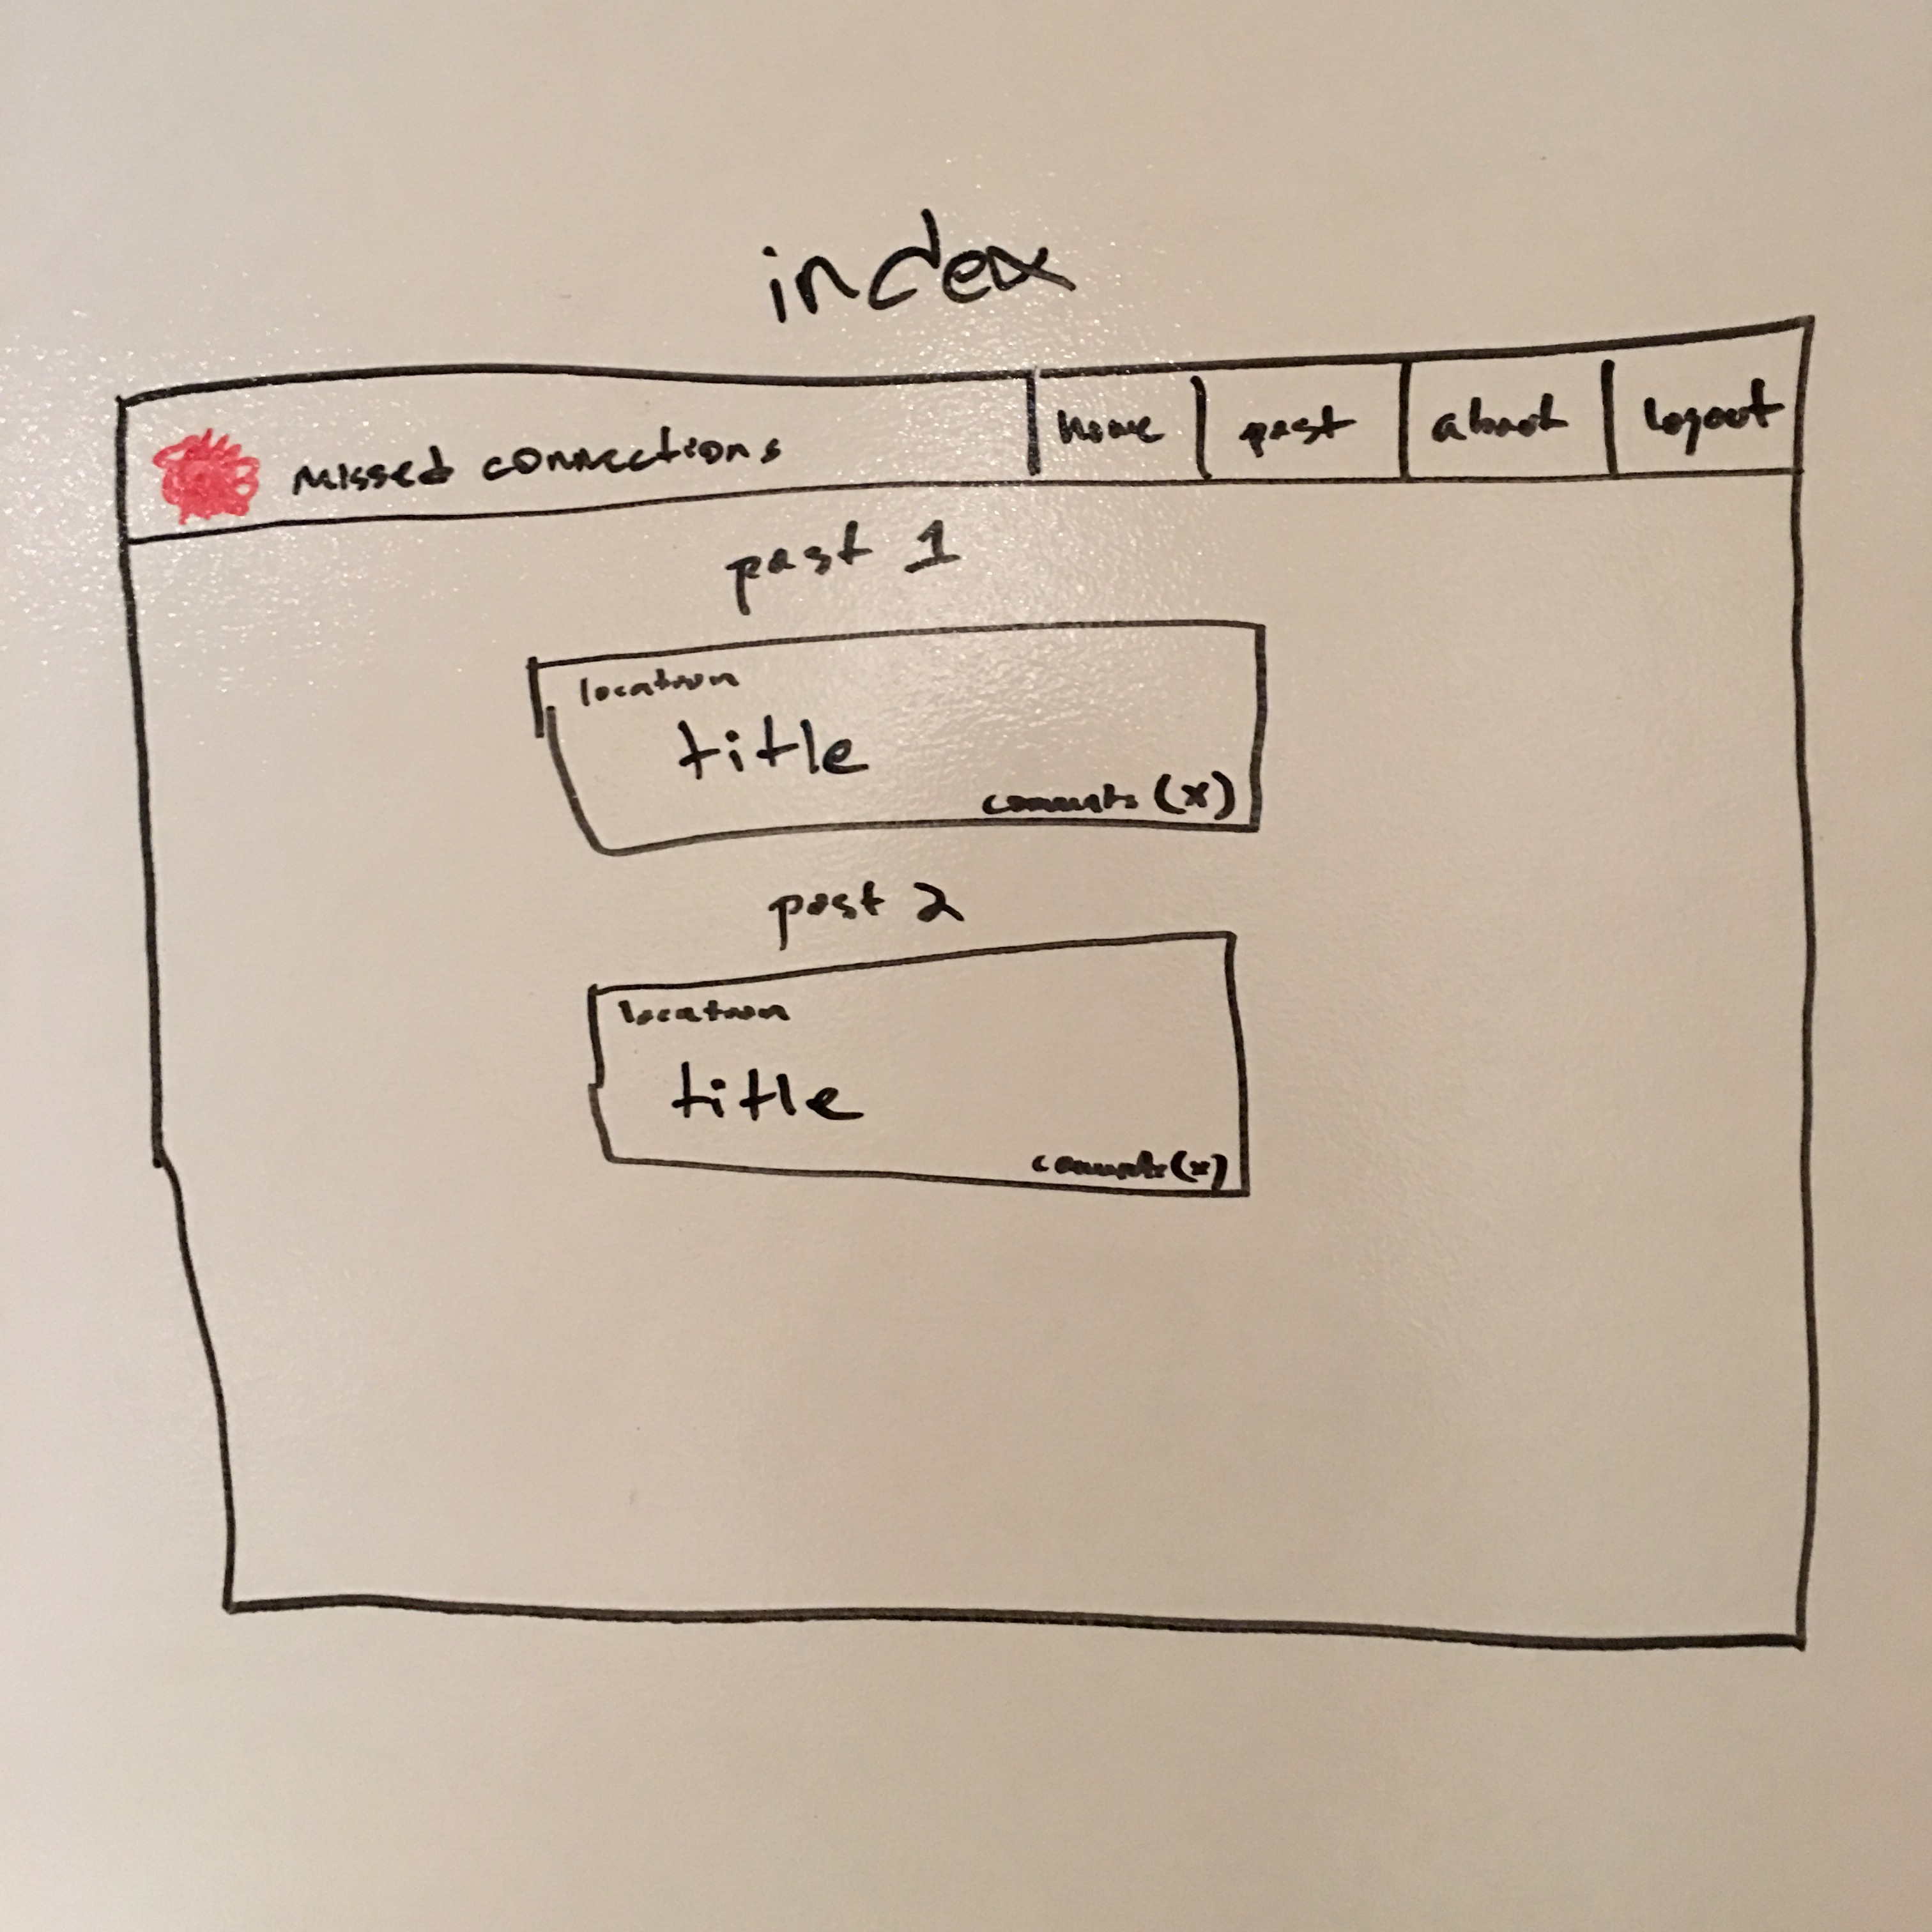 index
missed connections
home
post
about
logout
post 1
location
title
comments (x)
post 2
location
title
comments (x)